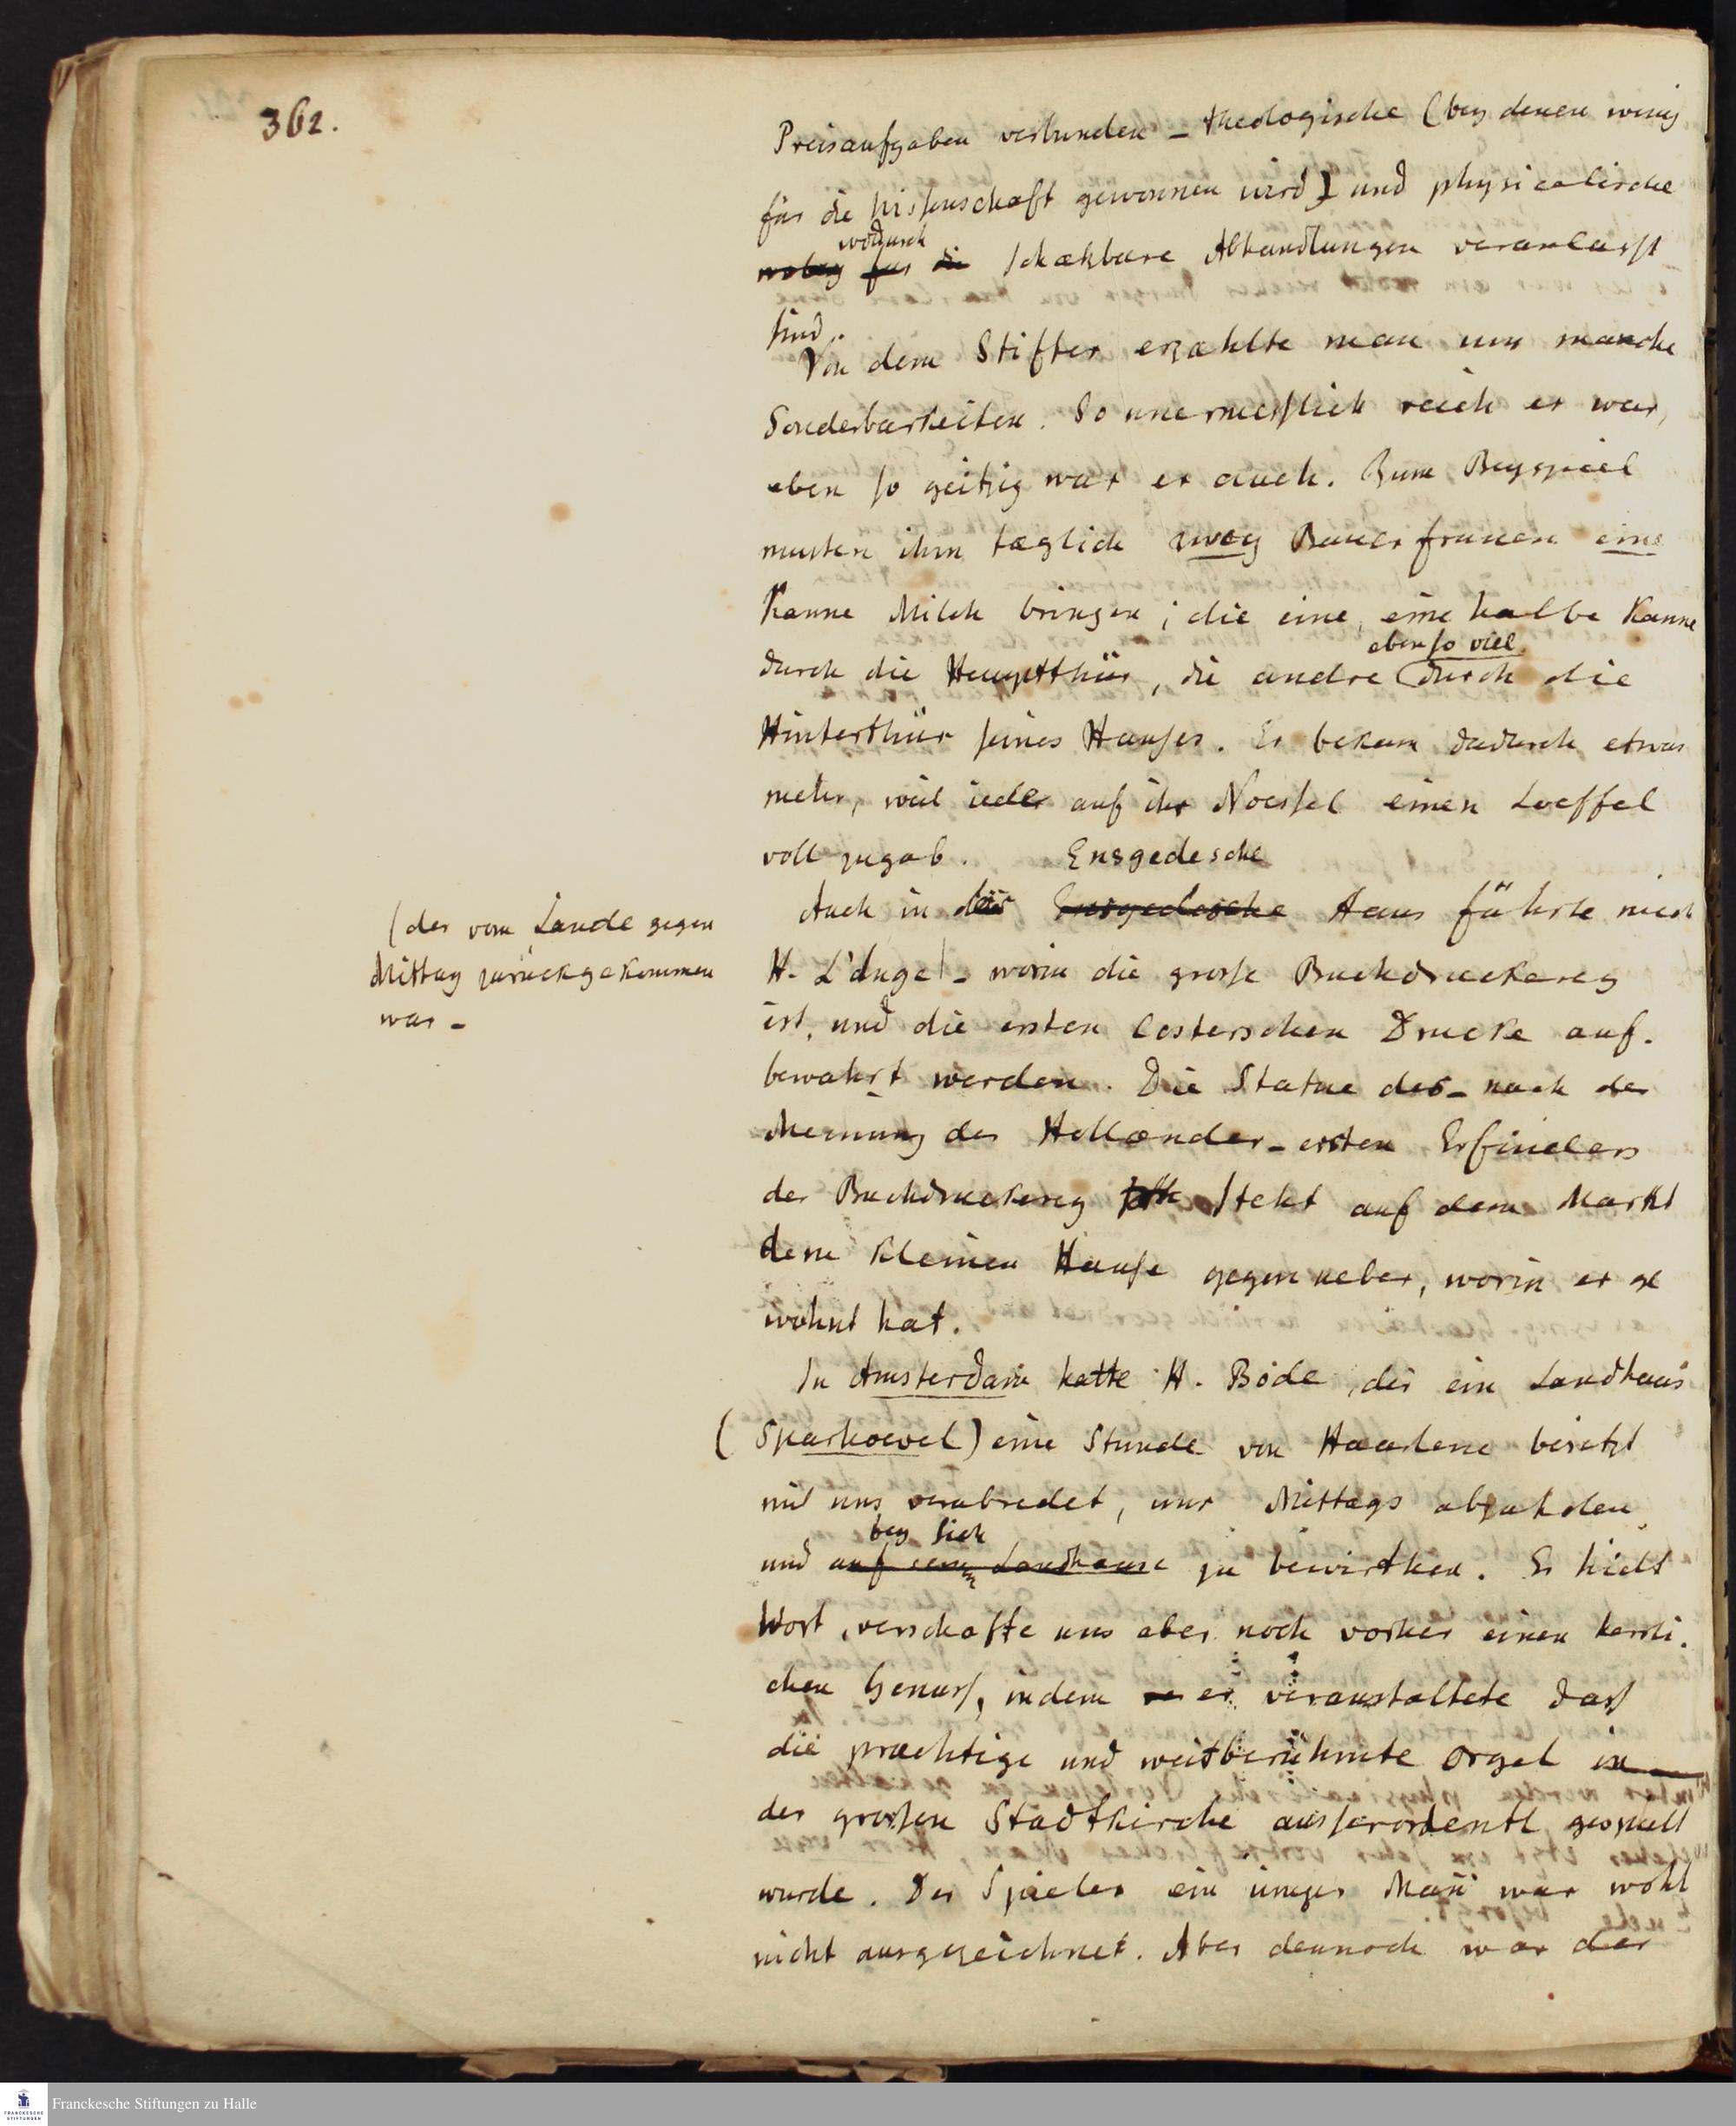 362.
Preisaufgaben verbunden – theologische (bey denen wenig
für die Wissenschaft gewonnen wird) und physicalische
wodurch
wobey für die schætzbare Abhandlungen veranlasst
sind.
Von dem Stifter erzæhlte man uns manche
Sonderbarkeiten. So unermesslich reich er war,
eben so geitzig war er auch. Zum Beyspiel
musten ihm tæglich zwey Bauerfrauen eine
Kanne Milch bringen; die eine, eine halbe Kanne
eben so viel
durch die Hauptthür, die andre (durch die
Hinterthür seines Hauses. Er bekam dadurch etwas
mehr, weil iede auf ihr Noessel einen Loeffel
voll zugab.
Ensgedesche
Auch in das Ensgedesche Haus führte mich
(der vom Lande gegen
Mittag zurückgekommen
war –
H. L'Ange) – worin die grosse Buchdruckerey
ist, und die ersten Costerschen Drucke auf-
bewahrt werden. Die Statue des – nach der
Meinung der Hollænder – ersten Erfinders
der Buchdruckerey steht auf dem Markt
dem kleinen Hause gegenueber, worin er ge
wohnt hat.
In Amsterdam hatte H. Bode, der ein Landhaus
(Sparhoevel) eine Stunde von Haarlem besitzt
mit uns verabredet, uns Mittags abzuholen
bey sich
und auf seinem Landhause zu bewirthen. Er hielt
Wort, verschafte uns aber noch vorher einen herrli-
chen Genuss, indem er veranstaltete dass
die præchtige und weitberühmte Orgel in
der grossen Stadtkirche ausserordentl gespielt
wurde. Der Spieler ein iunger Mann war wohl
nicht ausgezeichnet. Aber dennoch war der
Franckesche Stiftungen zu Halle